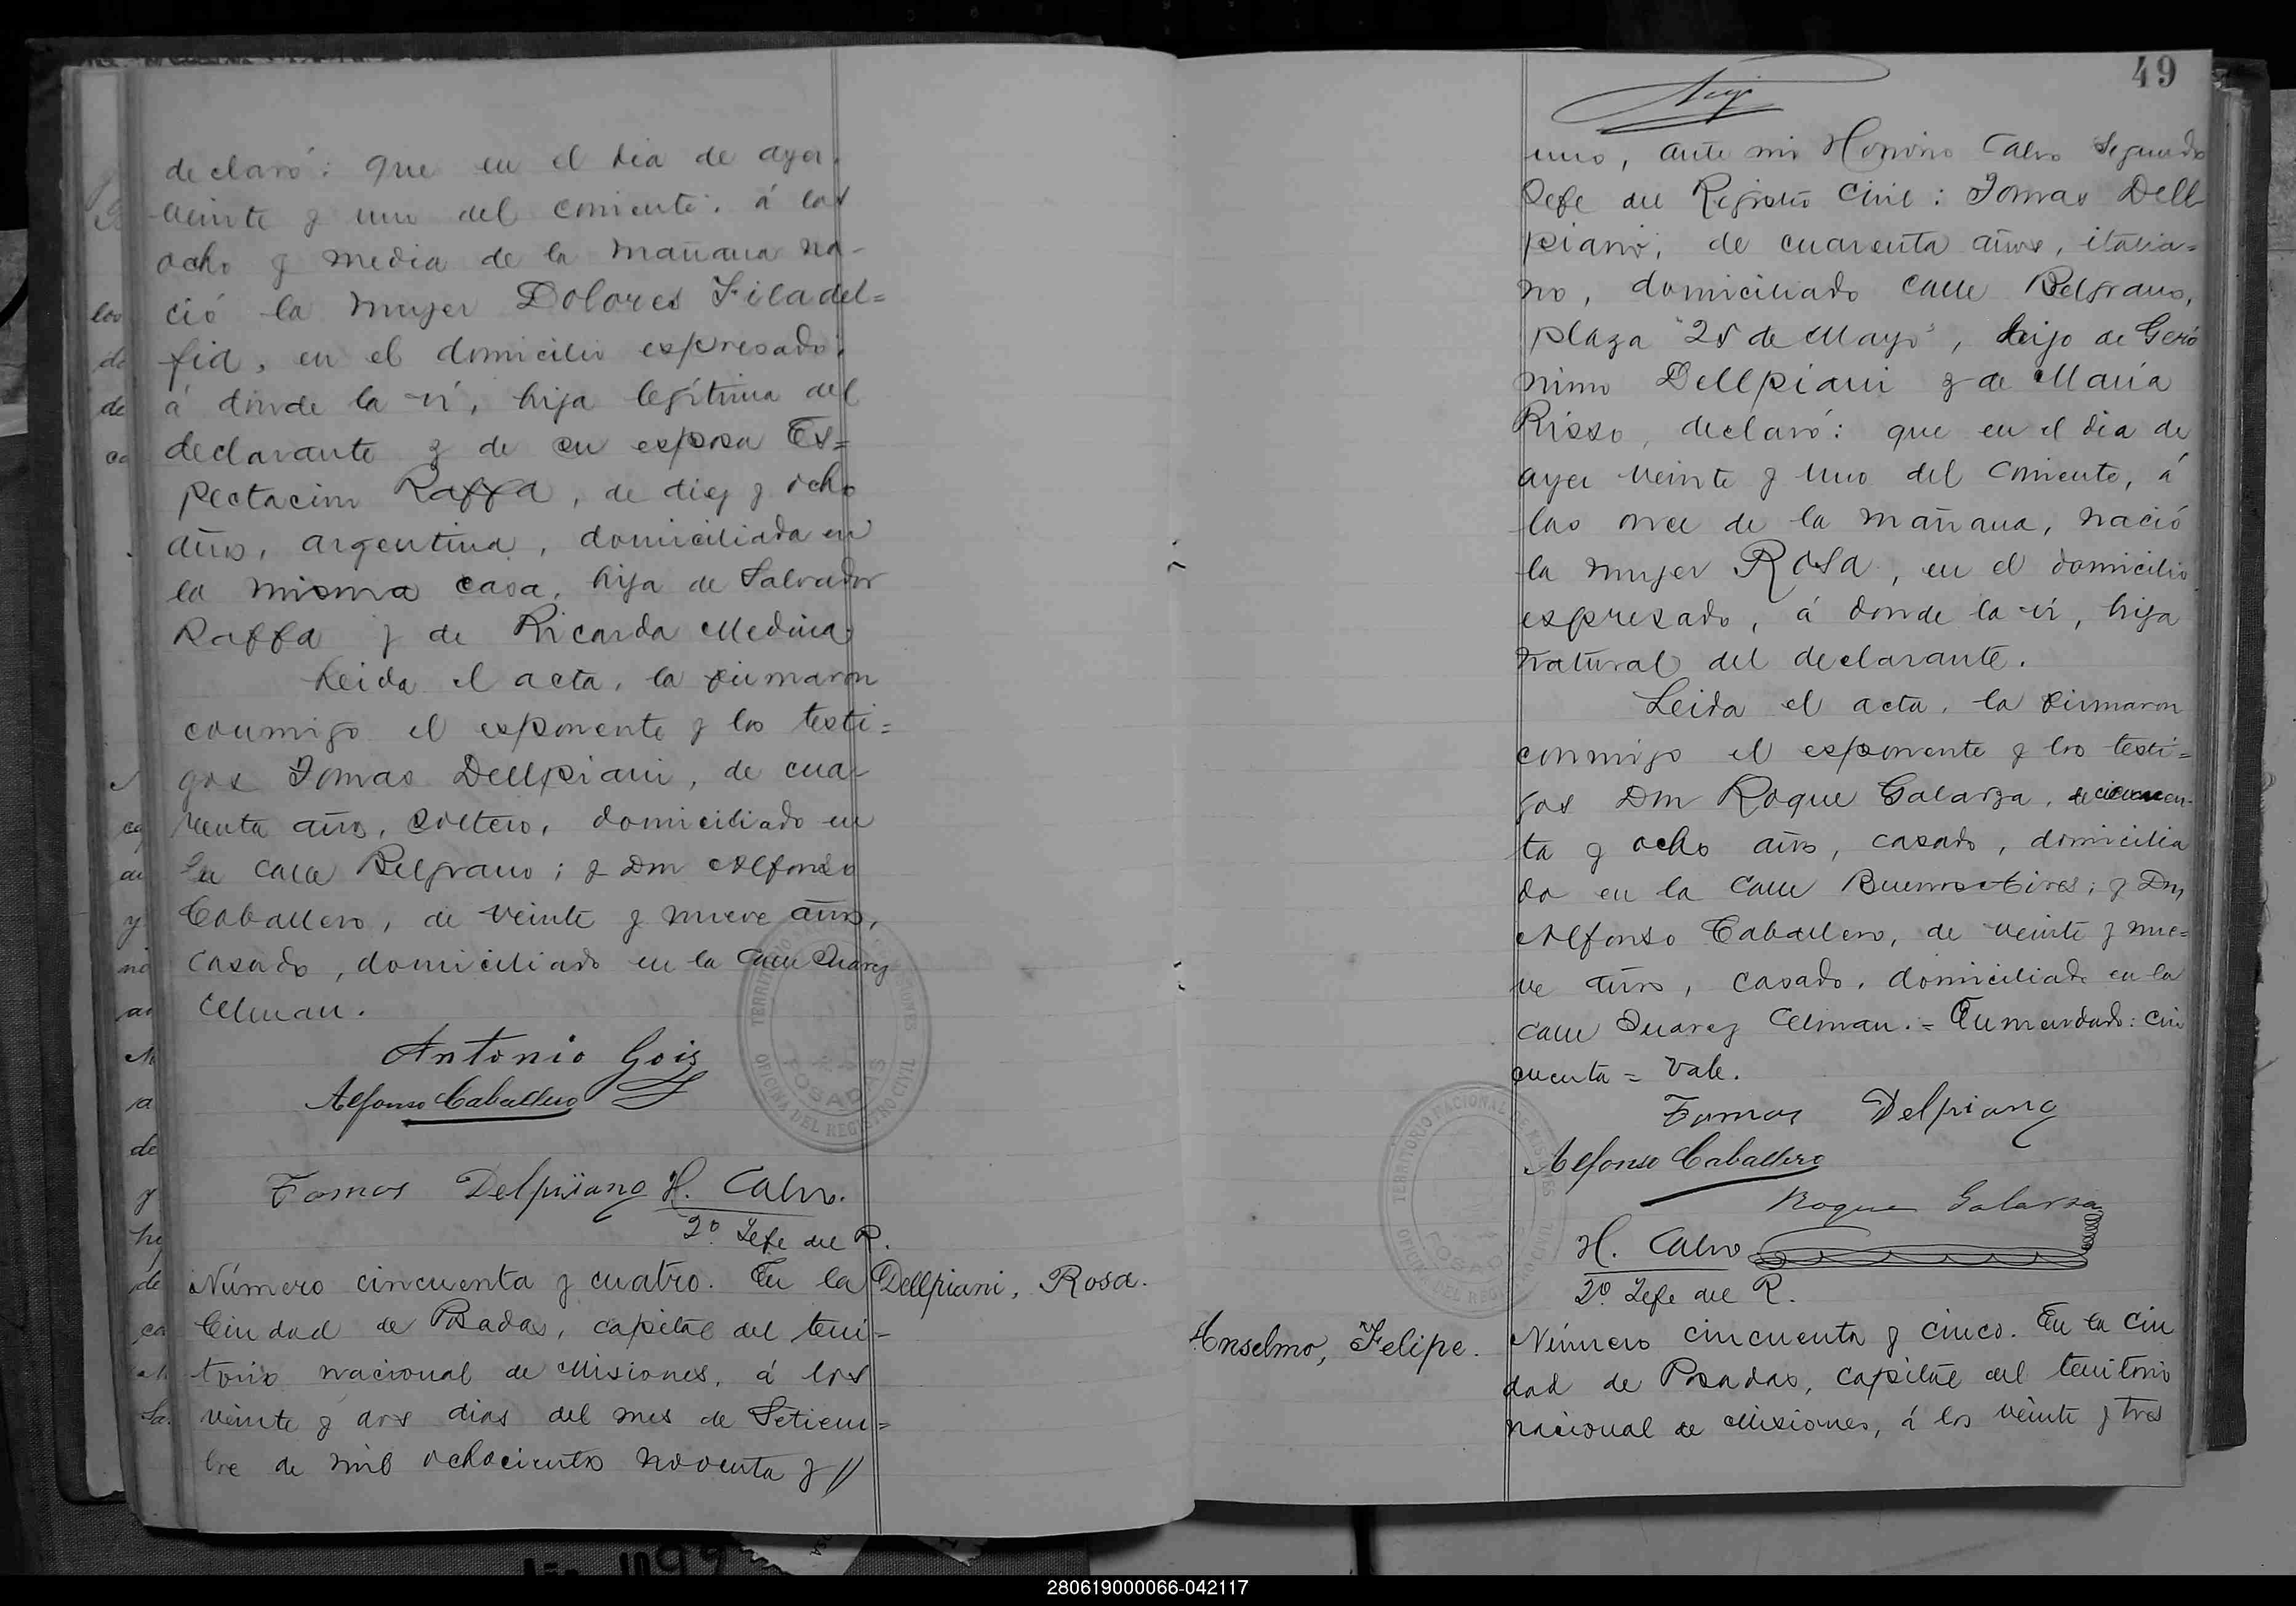 declaró: que en el dia de ayer,
veinte y uno del corriente, á las
ocho y media de la mañana na-
ció la mujer Dolores Filadel=
fia, en el domicilio espresado,
á dónde la ví, hija legítima del
declarante y de su esposa Es=
pectacion Raffa, de diez y ocho
años, argentina, domiciliada en
la misma casa, hija de Salvador
Raffa y de Ricarda Medina.
Leida el acta, la firmaron
conmigo el esponente y los testi=
gos Tomas Dellpiani, de cua-
renta años, soltero, domiciliado en
la calle Belgrano; y Dn Alfonso
Caballero, de veinte y nueve años,
casado, domiciliado en la calle Juarez
Celman.
Antonio Gois
Alfonso Caballero
Tomas Delpiano H. Calvo.
2º Jefe del R.
TERRITORIO NACIONAL DE MISIONES
POSADAS
OFICINA DEL REGISTRO CIVIL
Dellpiani, Rosa.
Número cincuenta y cuatro. En la
Ciudad de Posadas, capital del terri=
torio nacional de Misiones, á los
veinte y dos dias del mes de Setiem=
bre de mil ochocientos noventa y //
49
uno, ante mi Honorio Calvo Segundo
Jefe del Registro Civil: Tomas Dell
piani, de cuarenta años, italia=
no, domiciliado calle Belgrano,
plaza "25 de Mayo", hijo de Geró
nimo Dellpiani y de María
Risso, declaró: que en el dia de
ayer veinte y uno del corriente, á
las once de la mañana, nació
la mujer Rosa, en el domicilio
espresado, á donde la ví, hija
natural del declarante.
Leida el acta, la firmaron
conmigo el esponente y los testi=
gos Dn Roque Galarza, de cincuen-
ta y ocho años, casado, domicilia
do en la calle Buenos Aires; y Dn
Alfonso Caballero, de veinte y nue=
ve años, casado, domiciliado en la
calle Juarez Celman. = Enmendado: cin
cuenta = Vale.
Tomas Delpiano
Alfonso Caballero
Roque Galarza
H. Calvo
2º Jefe del R.
TERRITORIO NACIONAL DE MISIONES
POSADAS
OFICINA DEL REGISTRO CIVIL
Anselmo, Felipe.
Número cincuenta y cinco. En la Ciu
dad de Posadas, capital del territorio
nacional de Misiones, á los veinte y tres
280619000066-042117